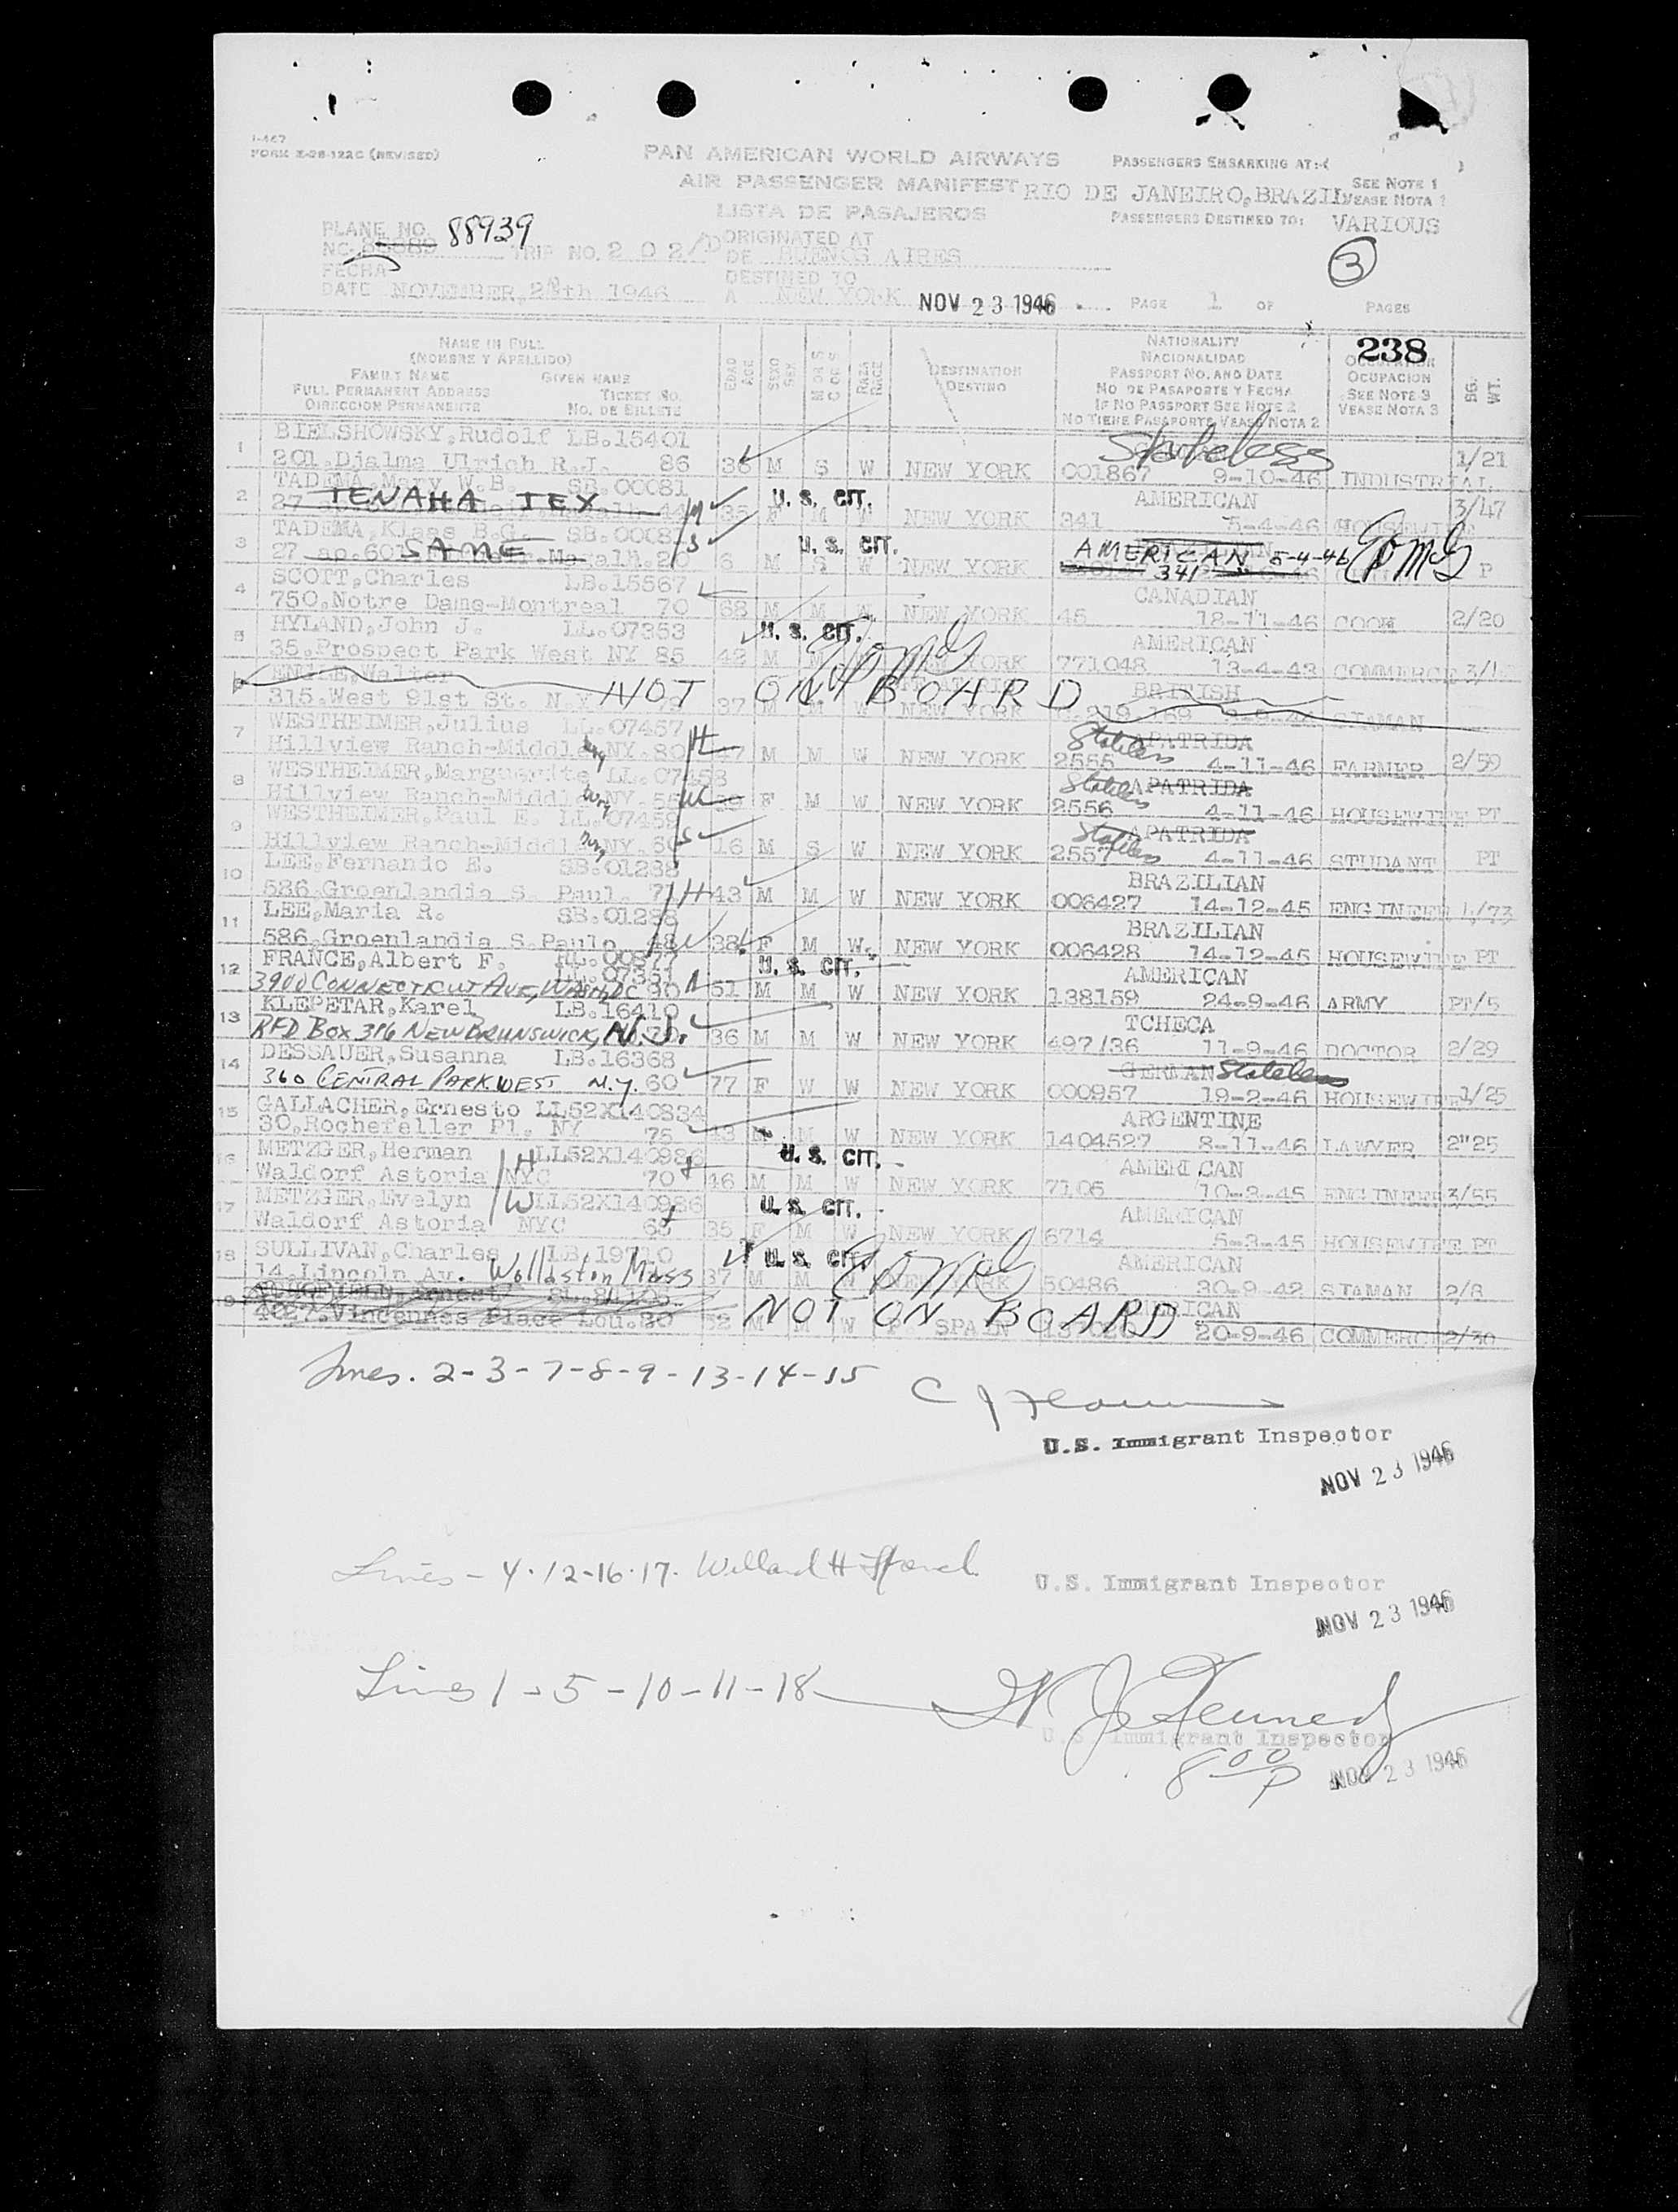 I-467
FORM E-28-122C (REVISED)
PAN AMERICAN WORLD AIRWAYS
AIR PASSENGER MANIFEST
LISTA DE PASAJEROS
PASSENGERS EMBARKING AT:
RIO DE JANEIRO, BRAZIL
SEE NOTE 1
VEASE NOTA 1
PASSENGERS DESTINED TO: VARIOUS
3
PLANE NO. 88939
NC-
TRIP NO. 202/
ORIGINATED AT
DE BUENOS AIRES
FECHA
DATE NOVEMBER, 1946
DESTINED TO
A NEW YORK NOV 23 1946
PAGE 1 OF PAGES
238
NAME IN FULL
(NOMBRE Y APELLIDO)
FAMILY NAME GIVEN NAME
FULL PERMANENT ADDRESS TICKET NO.
DIRECCION PERMANENTE NO. DE BILLETE
EDAD AGE
SEXO SEX
M OR S
C O S
RAZA RACE
DESTINATION
DESTINO
NATIONALITY
NACIONALIDAD
PASSPORT NO. AND DATE
NO DE PASAPORTE Y FECHA
IF NO PASSPORT SEE NOTE 2
NO TIENE PASAPORTE VEASE NOTA 2
OCUPACION
SEE NOTE 3
VEASE NOTA 3
WT.
1 BIELSHOWSKY, Rudolf LB.15401 Stateless 1/21
201, Djalma Ulrich R.J. 86 36 M S W NEW YORK 001867 9-10-46 INDUSTRIAL
2 TADEMA, Mary W.B. SB.00081 U. S. CIT. AMERICAN 3/47
27 TENAHA TEX 44 M 35 F M W NEW YORK 341 5-4-46 HOUSEWIFE
3 TADEMA, Klaas B.G. S U. S. CIT. AMERICAN 5-4-46
27 ap.601 SAME 20 6 M S W NEW YORK 341 P
4 SCOTT, Charles LB.15567 CANADIAN
750, Notre Dame-Montreal 70 68 M M W NEW YORK 45 18-11-46 COOK 2/20
5 HYLAND, John J. LL.07353 U. S. CIT. AMERICAN
35, Prospect Park West NY 85 42 M M NEW YORK 771048 13-4-43 COMMERCE
6 ENGLE, Walter NOT ON BOARD BRITISH
315, West 91st St. N.Y. 37 M M W NEW YORK STAMAN
7 WESTHEIMER, Julius LL.07457 H Stateless APATRIDA
Hillview Ranch-Middle NY. 80 47 M M W NEW YORK 2555 4-11-46 FARMER 2/59
8 WESTHEIMER, Marguerite LL.07458 Stateless APATRIDA
Hillview Ranch-Middle NY. 55 W F M W NEW YORK 2556 4-11-46 HOUSEWIFE PT
9 WESTHEIMER, Paul E. LL.07459 S Stateless APATRIDA
Hillview Ranch-Middle NY. 16 M S W NEW YORK 2557 4-11-46 STUDANT PT
10 LEE, Fernando E. SB.01288 BRAZILIAN
586, Groenlandia S. Paul. 77 H 43 M M W NEW YORK 006427 14-12-45 ENGINEER
11 LEE, Maria R. SB.01288 BRAZILIAN
586, Groenlandia S. Paulo 48 W 38 F M W NEW YORK 006428 14-12-45 HOUSEWIFE PT
12 FRANCE, Albert F. LL.07351 U. S. CIT. AMERICAN
3900 CONNECTICUT AVE, WASH, DC 51 M M W NEW YORK 138159 24-9-46 ARMY PT/5
13 KLEPETAR, Karel LB.16410 TCHECA
RFD BOX 316 NEW BRUNSWICK, N.J. 36 M M W NEW YORK 497/36 11-9-46 DOCTOR 2/29
14 DESSAUER, Susanna LB.16368 GERMAN Stateless
360 CENTRAL PARK WEST N.Y. 60 77 F W W NEW YORK 000957 19-2-46 HOUSEWIFE 1/25
15 GALLACHER, Ernesto LL52X140834 ARGENTINE
30, Rochefeller Pl. NY 75 43 M M W NEW YORK 1404527 8-11-46 LAWYER 2"25
16 METZGER, Herman H LL52X140986 U. S. CIT. AMERICAN
Waldorf Astoria NYC 70 46 M M W NEW YORK 7105 10-3-45 ENGINEER 3/55
17 METZGER, Evelyn W LL52X140986 U. S. CIT. AMERICAN
Waldorf Astoria NYC 65 35 F M W NEW YORK 6714 5-3-45 HOUSEWIFE PT
18 SULLIVAN, Charles LB.19710 U. S. CIT. AMERICAN
14, Lincoln Av. Wollaston Mass 37 M M W NEW YORK 50486 30-9-42 STAMAN 2/8
19 NOT ON BOARD AMERICAN
4027, Vincennes Place Lou. 80 52 M M W P. SPAIN 20-9-46 COMMERCE 2/30
Lines. 2-3-7-8-9-13-14-15
U.S. Immigrant Inspector
NOV 23 1946
Lines - 4.12-16.17. Willard H
U.S. Immigrant Inspector
NOV 23 1946
Lines 1-5-10-11-18 W J Kennedy
U.S. Immigrant Inspector
8 00 P NOV 23 1946